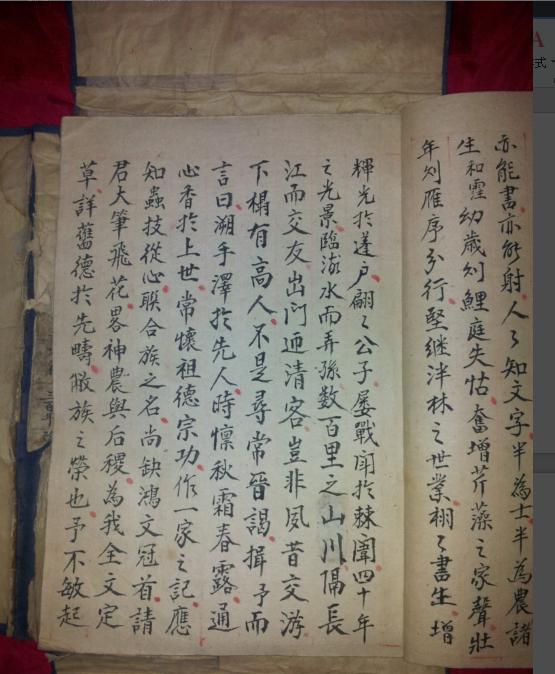 亦能書亦能射人々知文字半為士半為農諸
生和幼歲則鯉庭失怙奮增芹藻之家聲壯
年則雁序分行堅继泮林之世業栩々書生增
輝光扵蓬戶翩々公子屡戰聞扵棘闈四十年
之光景臨渤水而弄孫数百里之山川隔長
江而交友出門迎清客豈非夙昔交游
下榻有高人不是尋常晉謁揖予而
言曰溯手澤扵先人時懍秋霜春露通
心香扵上世常懷祖德宗功作一家之記應
知蟲技從心聯合族之名尚缺鴻文冠首請
君大筆飛花畧神農與后稷為我全文定
草詳舊德扵先疇敝族之榮也予不敏起
A
式